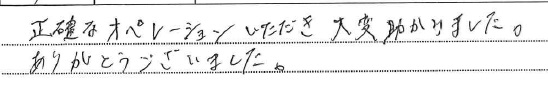 正確なオペレーションいただき大変助かりました。
ありがとうございました。